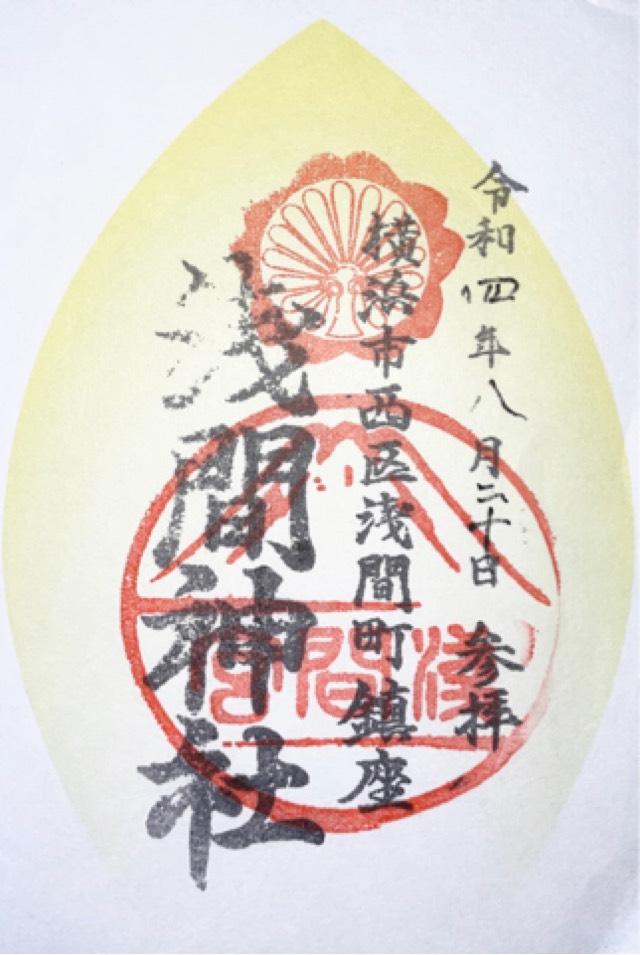 令和四年八月二十日 参拝
横浜市西区浅間町鎮座
浅間神社
浅間宮